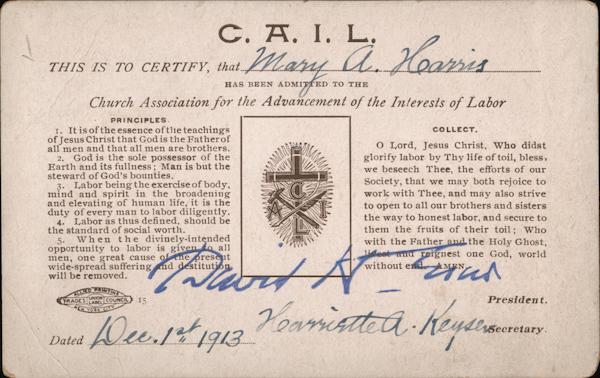 C. A. I. L.
THIS IS TO CERTIFY, that Mary A. Harris
HAS BEEN ADMITTED TO THE
Church Association for the Advancement of the Interests of Labor
PRINCIPLES.
1. It is of the essence of the teachings
of Jesus Christ that God is the Father of
all men and that all men are brothers.
2. God is the sole possessor of the
Earth and its fullness; Man is but the
steward of God's bounties.
3. Labor being the exercise of body,
mind and spirit in the broadening
and elevating of human life, it is the
duty of every man to labor diligently.
4. Labor as thus defined, should
be the standard of social worth.
5. When the divinely-intended
opportunity to labor is given to all
men, one great cause of the present
wide-spread suffering and destitution
will be removed.
C
A I
L
COLLECT.
O Lord, Jesus Christ, Who didst
glorify labor by Thy life of toil, bless,
we beseech Thee, the efforts of our
Society, that we may both rejoice to
work with Thee, and may also strive
to open to all our brothers and sisters
the way to honest labor, and secure to
them the fruits of their toil; Who
with the Father and the Holy Ghost,
livest and reignest one God, world
without end. AMEN.
David H.
President.
ALLIED PRINTING
TRADES UNION LABEL COUNCIL
NEW YORK CITY
15
Harriette A. Keyser Secretary.
Dated Dec. 1st 1913